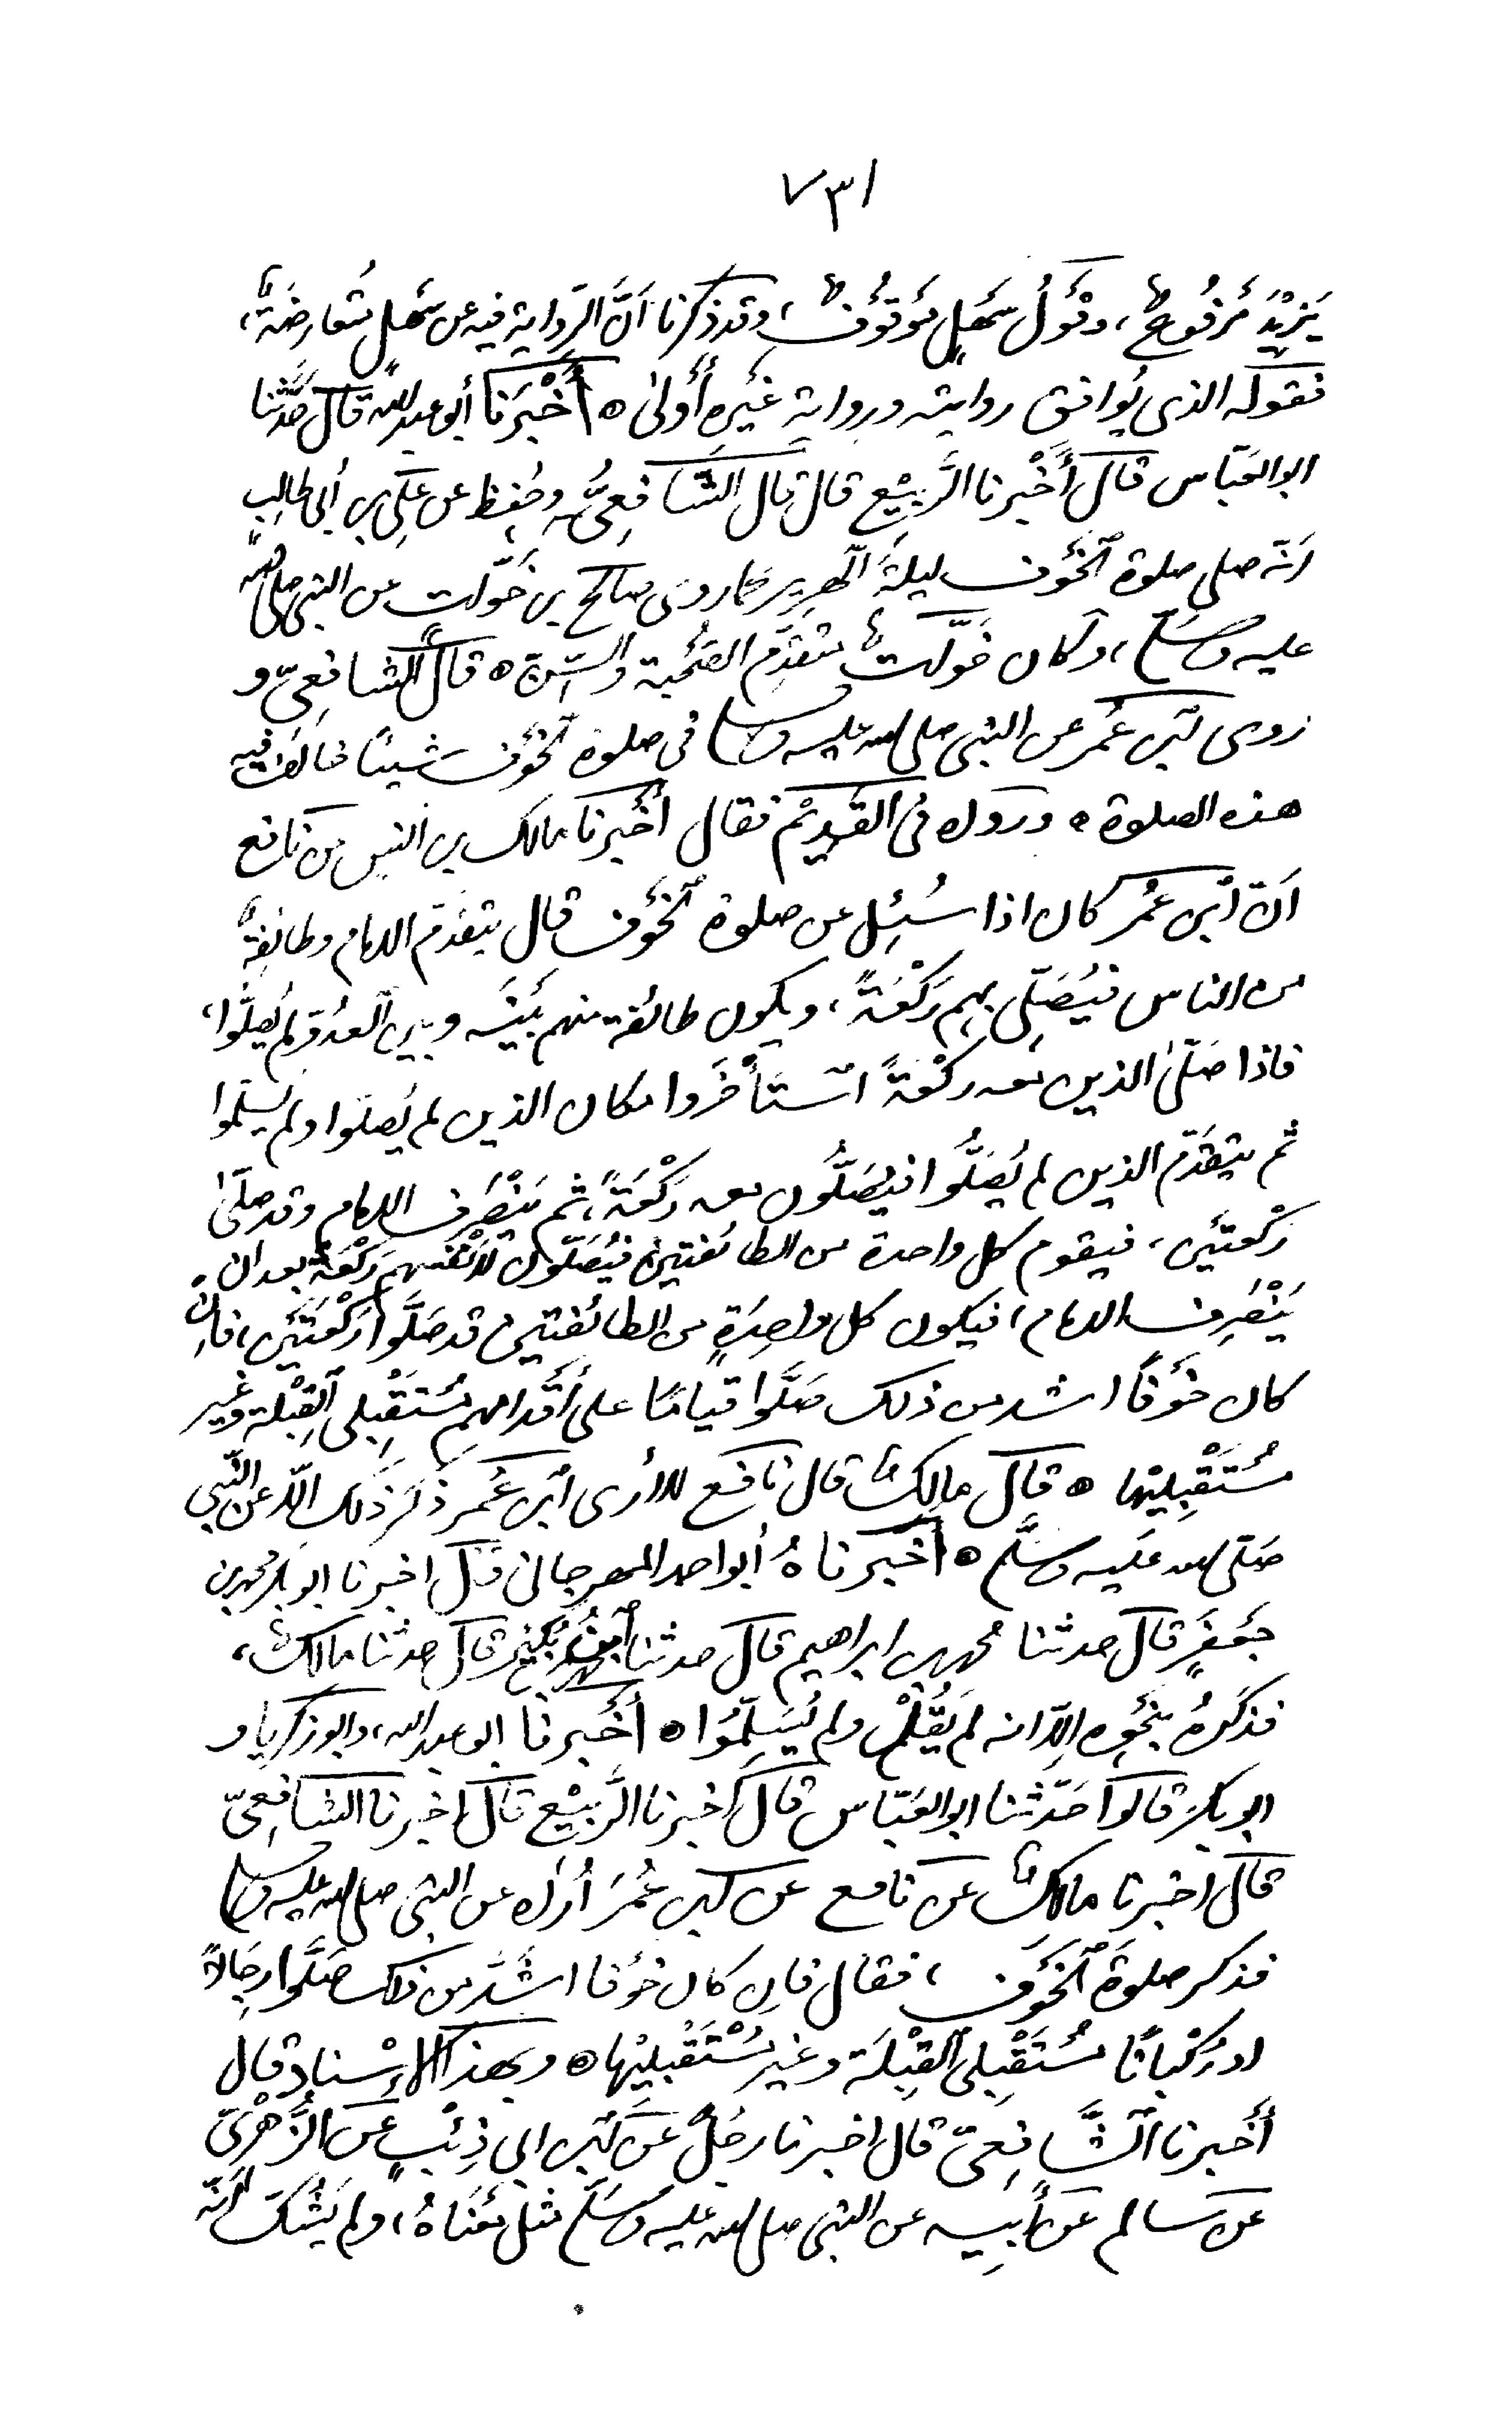 ٧٣١
يَزِيْدَ مَرْفُوعٌ، وقَوْلُ سَهْلٍ مَوْقُوْفٌ، وقد ذكرنا أَنَّ الرِّواية فيه عن سَهْلٍ مُتَعارِضَةٌ،
فقوله الذى يُوافق روايته ورواية غَيْرِهِ أَوْلىٰ ٥ أَخْبَرَنا أبو عبد الله قال حَدَّثنا
ابو العَبّاس قال أَخْبرنا الرَّبِيْع قال قال الشّافِعِىُّ وحُفِظ عن عَلِى بن أبى طالِبٍ
أنّه صلى صلوة الخَوْف ليلةَ الهَرِير كما روى صالح بن خَوّات عن النبى صلى الله
عليه وسَلَّم، وكان خَوَّاتٌ مُتَقَدِّم الصُّحْبة والسِّنّ ٥ قال الشافِعِىّ و
روى ابْن عُمر عن النبى صلى الله عليه وسلم فى صلوة الخَوْف شَيئًا خالَفَ فيه
هذه الصلوة ٥ ورواه فى القَدِيْم فقال أَخْبرنا مالك بن انس عن نافع
أَنّ ابْن عُمر كان اذا سُئِل عن صلوة الخَوْف قال يتقدّم الامام وطائِفةٌ
من الناس فيُصَلِّى بهم رَكْعَةً، ويكون طائفة منهم بَيْنَه وبين العدُوّ لم يُصَلُّوا،
فاذا صَلّىٰ الذين معه ركْعَةً اسْتَأْخَروا مكان الذين لم يُصَلّوا ولم يُسلِّموا
ثم يتقَدّم الذين لم يُصَلُّوا فيُصَلُّون معه رَكْعَةً، ثم يَنْصَرِف الامام وقد صلّىٰ
رَكْعتَيْن، فيقوم كل واحدة من الطائفتين فيُصَلّون لأَنْفُسهم رَكْعَةً بعد ان
يَنْصَرِف الامام، فيكون كل واحِدَةٍ من الطائفتين قد صَلَّوا رَكْعَتَيْن، فإنْ
كان خَوْفًا اشد من ذلك صَلَّوا قيامًا على أَقْدامهم مُسْتَقْبِلى القِبْلة وغير
مُسْتَقْبِلِيْها ٥ قال مالِكٌ قال نافع لا أرى ابْن عُمر ذَكَرَ ذَلك الّا عن النَّبِى
صَلّى الله عَليه وسَلَّم ٥ أَخْبَرناهُ أبو احمد المهرجانى قال اخبرنا ابو بكر محمد بن
جَعْفَرٍ قال حدثنا محمد بن ابراهيم قال حدثنا ابن بُكَيْر قال حدثنا مالكٌ،
فذكَرهُ بنَحْوِه الّا انه لَم يَقُلْ ولم يُسَلِّمُوا ٥ أَخْبَرنا ابو عبد الله، وابو زكريا و
ابو بكر قالوا حَدّثنا ابو العَبّاس قال أخبرنا الرَّبِيْع قال اخبرنا الشافِعِىّ
قال اخبرنا مالكٌ عن نافع عن ابْن عُمَرَ أُراه عن النبى صلى الله عليه وسلم
فذكر صلوةَ الخَوْفِ، فقال فان كان خَوْفا اشَدَّ من ذلك صَلَّوا رِجَالًا
او رُكْبانًا مُسْتَقْبِلى القِبْلَة وغير مُسْتَقْبِلِيْها ٥ وبهذا الإسْناد قال
أَخْبرنا الشَّافِعىّ قال اخبرنا رجُلٌ عن ابْن ابى ذِئْبٍ عن الزُّهْرىّ
عن سالم عن أَبِيه عن النبى صلى الله عليه وسَلَّم مثل مَعْنَاهُ، ولم يَشُكّ أنّه